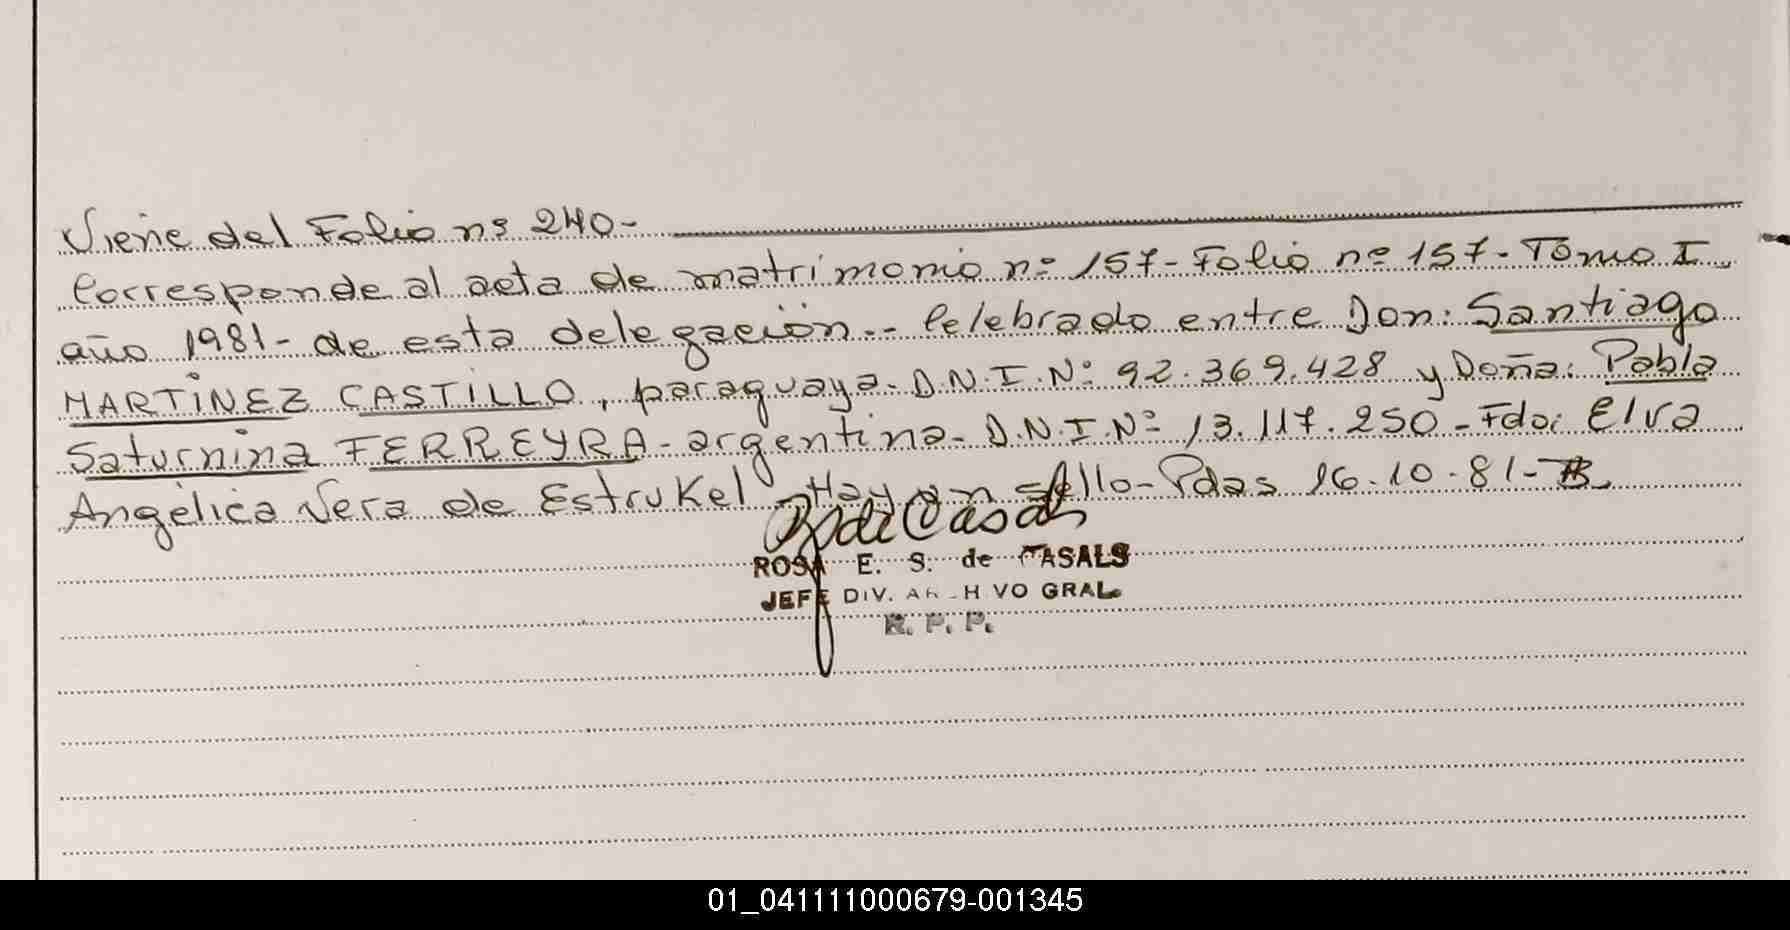 Viene del Folio nº 240-
Corresponde al acta de matrimonio nº 157- Folio nº 157- Tomo I
año 1981- de esta delegación.- Celebrado entre Don: Santiago
MARTÍNEZ CASTILLO, paraguaya. D.N.I.Nº 92.369.428 y Doña: Pabla
Saturnina FERREYRA- argentina- D.N.I.Nº 13.117.250- Fdo: Elva
Angélica Vera de Estrukel- Hay un sello- Pdas 16.10.81-
ROSA E. S. de CASALS
JEFE DIV. ARCHIVO GRAL.
R. P. P.
01_041111000679-001345